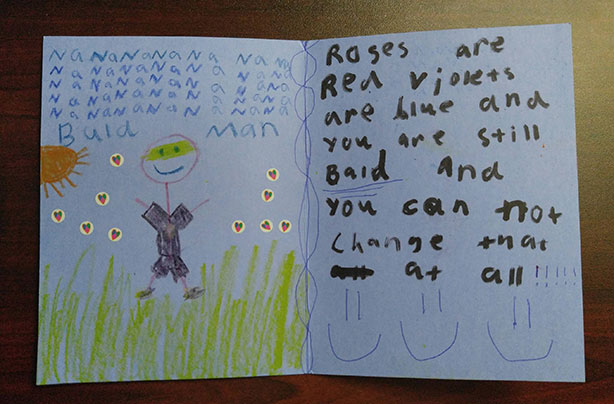 Na Na Na Na Na Na Na
Na Na Na Na Na Na Na
Na Na Na Na Na Na Na
Na Na Na Na Na Na Na
Na Na Na Na Na Na Na
Bald Man
Roses are
Red violets
are blue and
you are still
Bald And
you can not
change that
at all !!!!!!